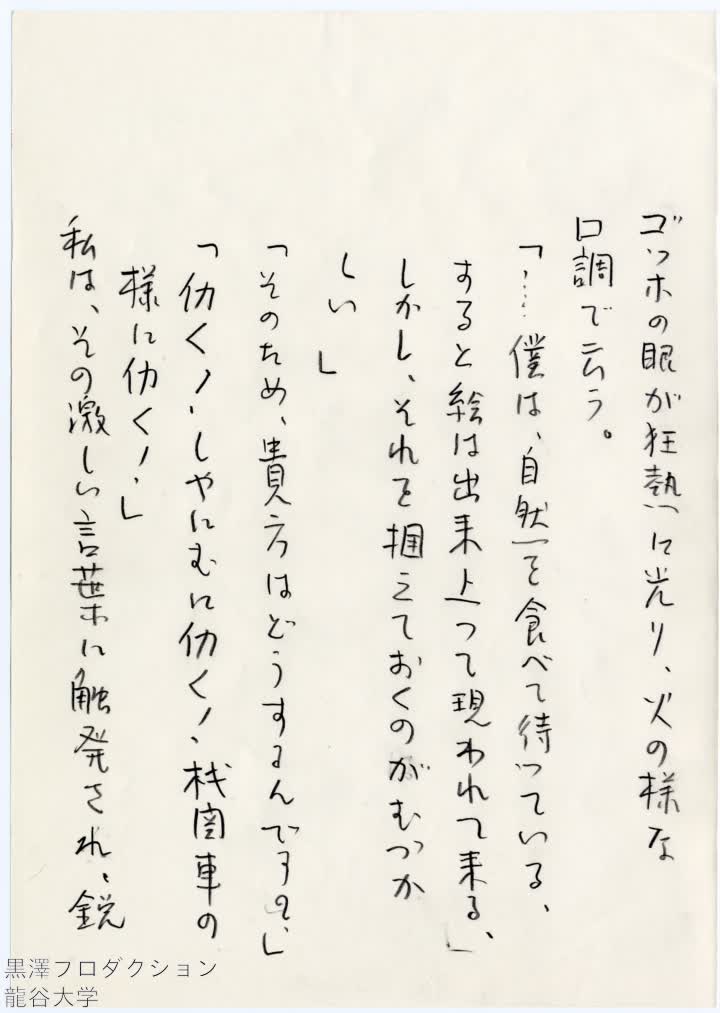 ゴッホの眼が狂熱に光り、火の様な
口調で云う。
「……僕は、自然を食べて待っている、
すると絵は出来上って現われて来る、」
しかし、それを掴えておくのがむづか
しい」
「そのため、貴方はどうするんです?」
「仂く!しやにむに仂く!枝関車の
様に仂く!」
私は、その激しい言葉に触発され、鋭
黒澤プロダクション
龍谷大学